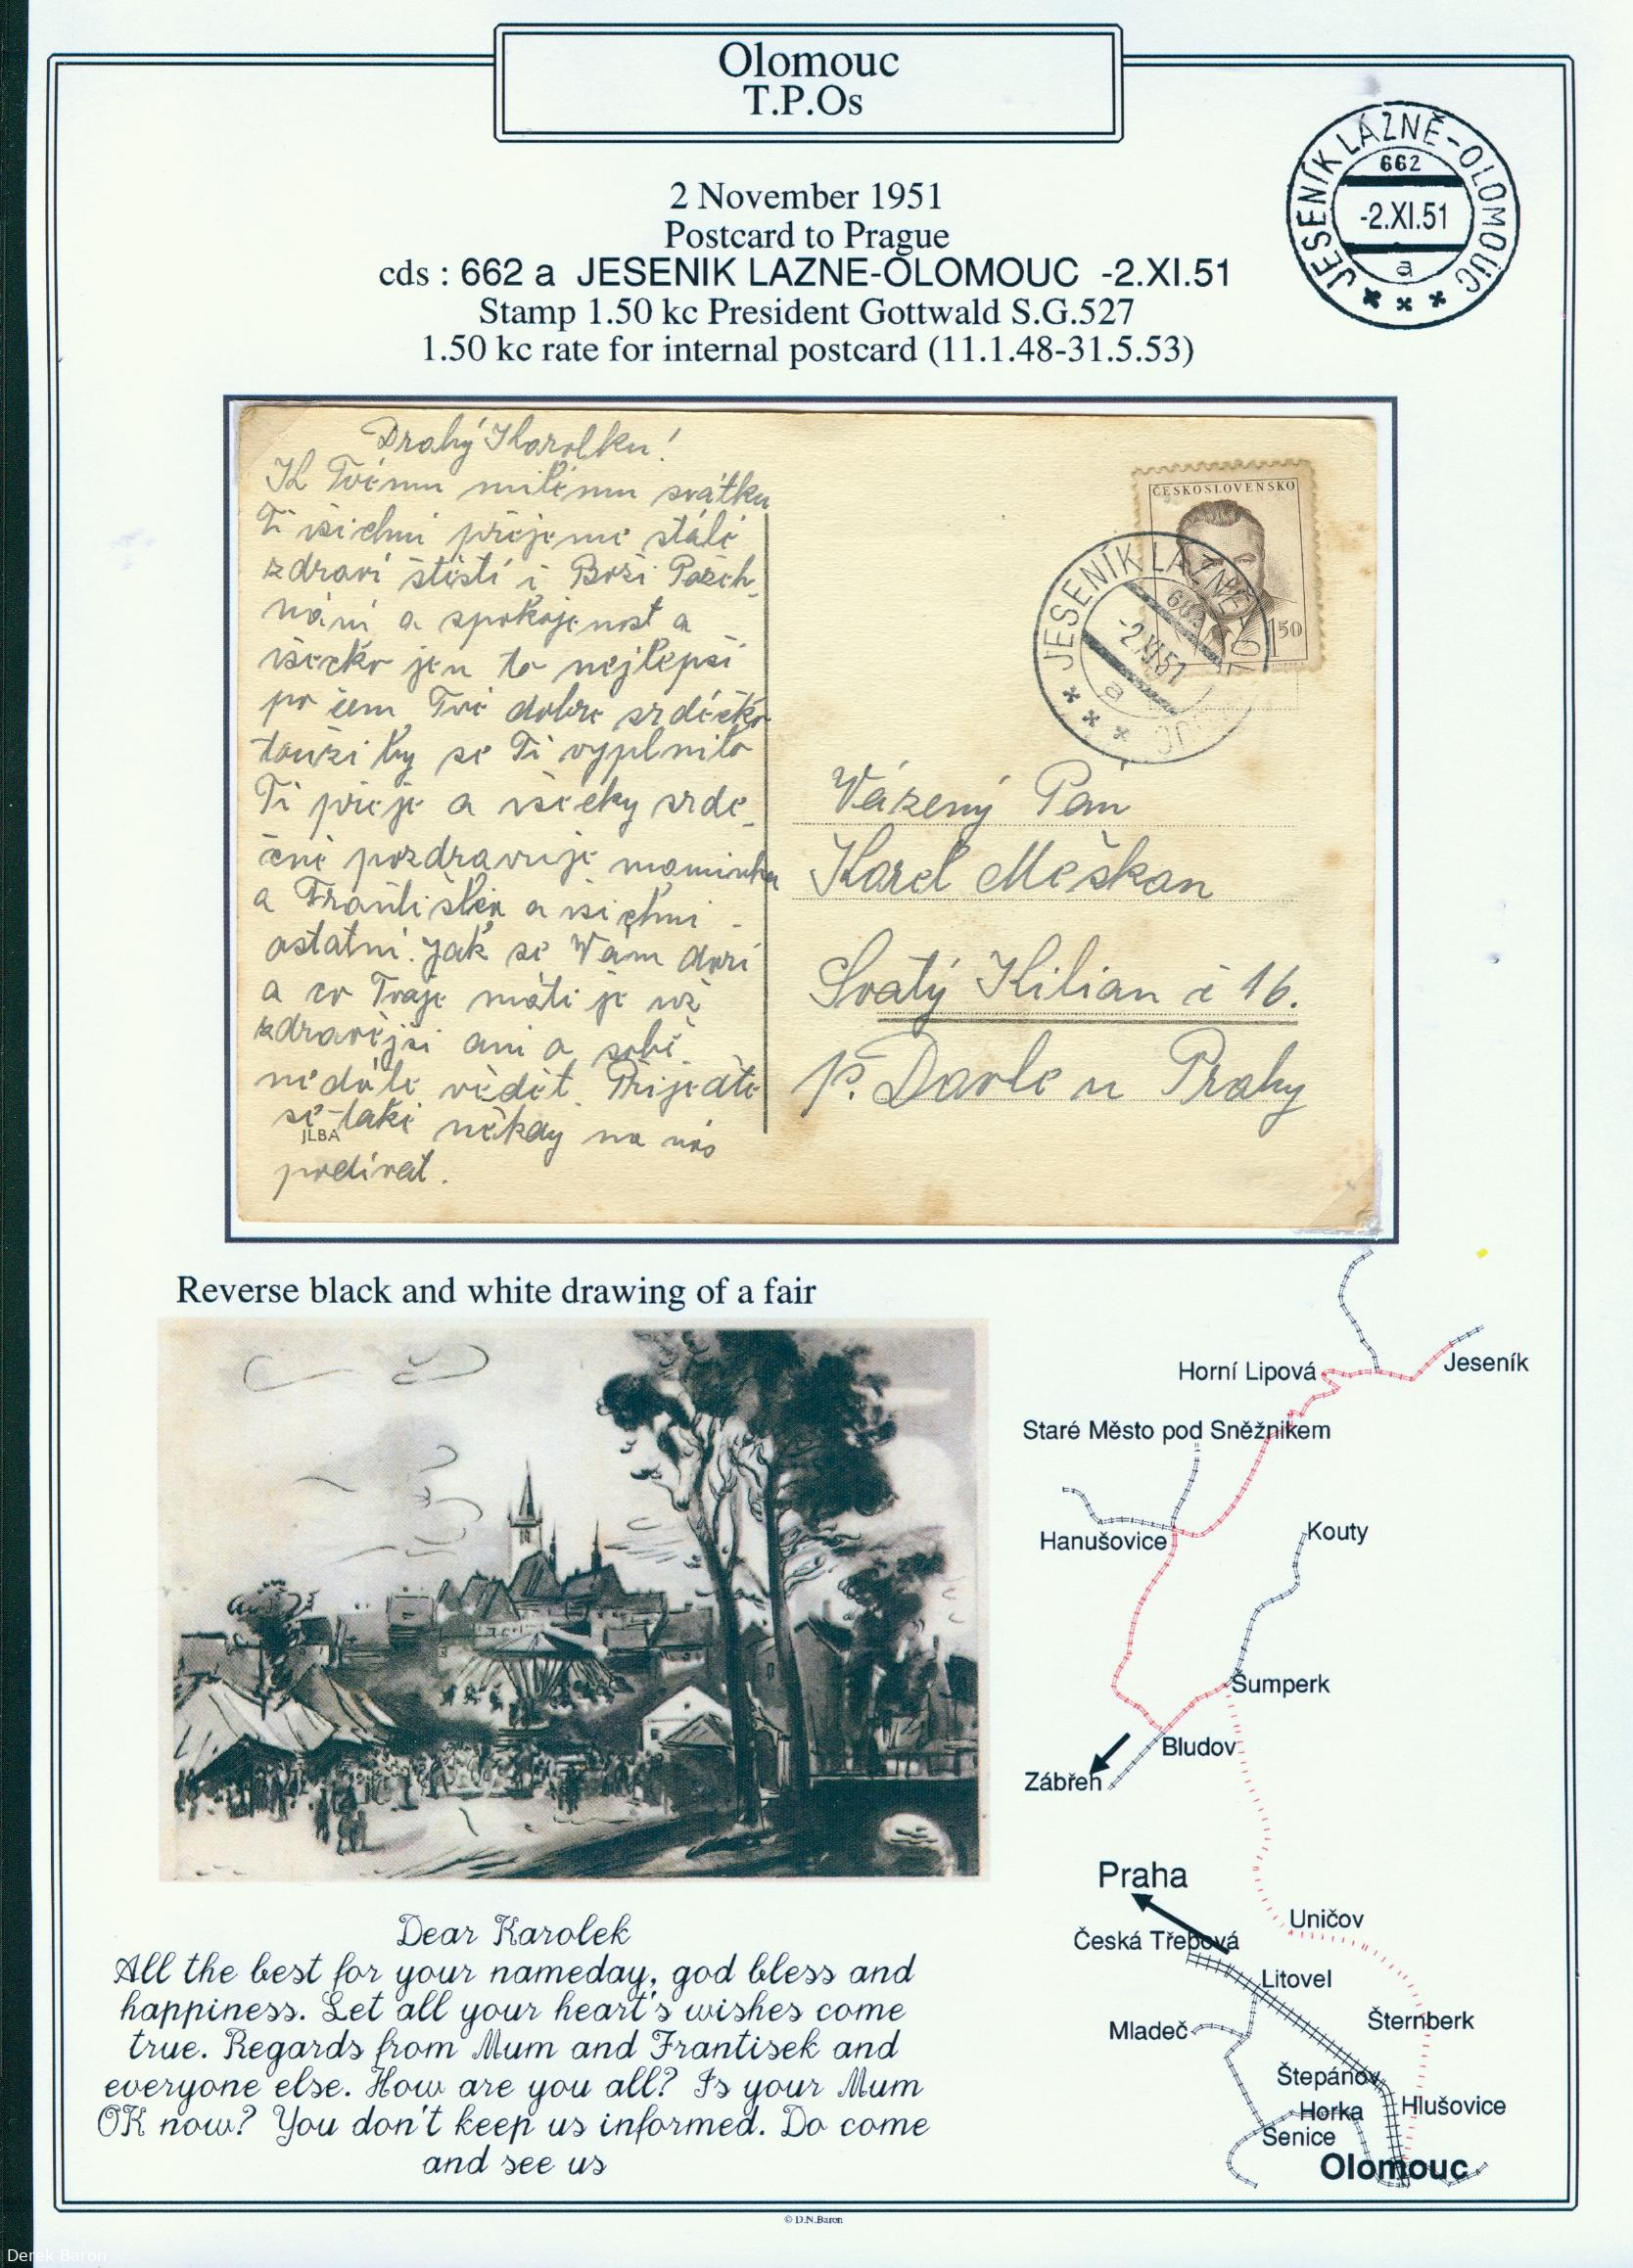 Olomouc
T.P.Os
2 November 1951
Postcard to Prague
cds : 662 a JESENIK LAZNE-OLOMOUC -2.XI.51
Stamp 1.50 kc President Gottwald S.G.527
1.50 kc rate for internal postcard (11.1.48-31.5.53)
JESENÍK LÁZNĚ-OLOMOUC
662
-2.XI.51
a
Drahý Karolku!
K Tvému milému svátku
Ti všichni přejeme stálé
zdraví štěstí i Boží Požeh-
nání a spokojenost a
všecko jen to nejlepší
po čem Tvé dobré srdéčko
touží by se Ti vyplnilo
Ti přeje a všecky srde-
čně pozdravuje maminka
a František a všichni
ostatní. Jak se Vám daří
a co Tvoje máti je už
zdravější ani o sobě
nedáte vědět. Přijeďte
se také někdy na nás
podívat.
JLBA
ČESKOSLOVENSKO
1 50
JESENÍK LÁZNĚ
662
-2.XI.51
a
Vážený Pán
Karel Meškan
Svatý Kilian č 16.
p. Davle u Prahy
Reverse black and white drawing of a fair
Horní Lipová
Jeseník
Staré Město pod Sněžnikem
Hanušovice
Kouty
Šumperk
Bludov
Zábřeh
Praha
Uničov
Česká Třebová
Litovel
Šternberk
Mladeč
Štepánov
Hlušovice
Horka
Senice
Olomouc
Dear Karolek
All the best for your nameday, god bless and
happiness. Let all your heart's wishes come
true. Regards from Mum and Frantisek and
everyone else. How are you all? Is your Mum
OK now? You don't keep us informed. Do come
and see us
© D.N.Baron
Derek Baron